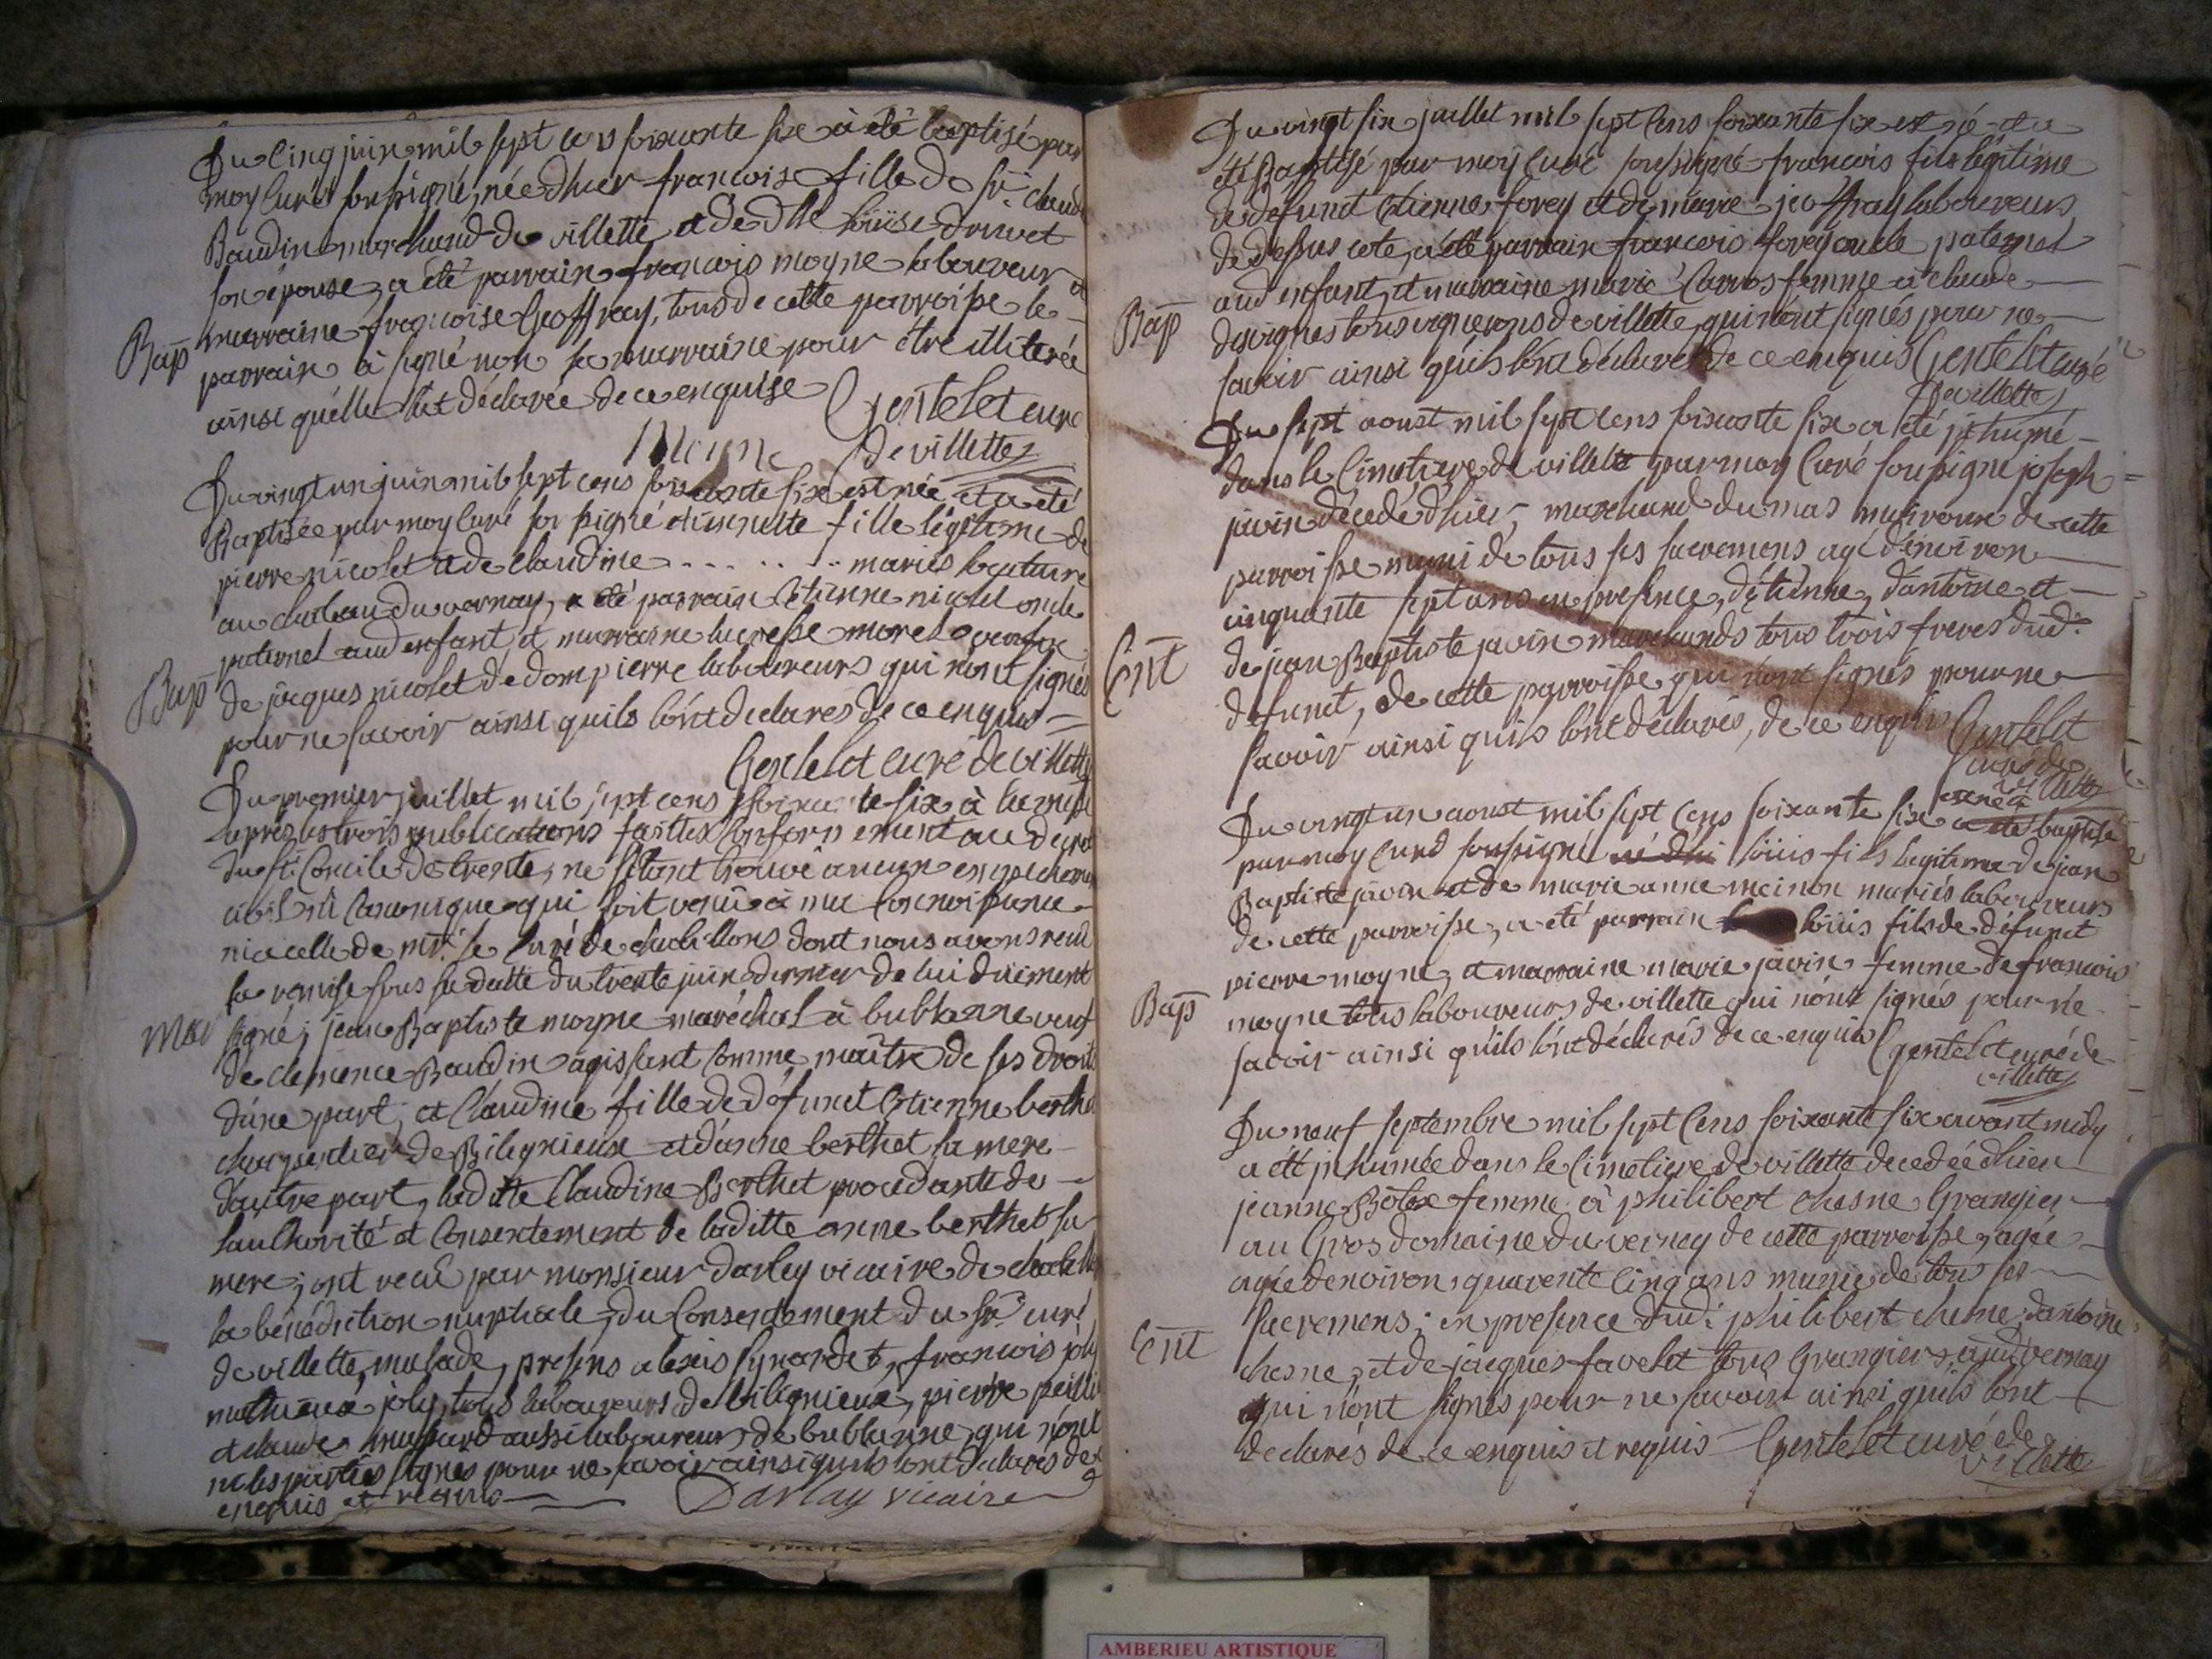 Du cinq juin mil sept cens soixante six à été baptisé par
moy curé soussigné, née d'hier francoise fille de sr. claude
Baudin marchand de villette et de dlle loüise druvet
son épouse, a été parrain francois moyne laboureur et
marraine francoise Geoffray, tous de cette parroisse le
Bap
parrain à signé non la marraine pour être illiterée
ainsi quélle l'at déclarée de ce enquise Gentelet curé
Moine de villette
Du vingt un juin mil sept cens soixante six est née et a été
Baptisée par moy curé soussigné fille légitime de
pierre nicolet et de claudine . . . . . . mariés
au chateau du vernay, a été parrain Etienne nicolet oncle
paternel aud enfant, et marraine lucresse morel
Bap
de jacques nicolet de dompierre laboureurs qui n'ont signés
pour ne savoir ainsi quils lónt declarés de ce enquis
Gentelet curé de villette
Du premier juillet mil sept cens soixante six à
après les trois publications faittes conformement au decret
du st. Concile de trente, ne s'étant trouvé aucun empechement
civil ni canonique qui soit venû à ma connoissance
ni a celle de mr. le curé de chatillon dont nous avons reçu
la remise sous la datte du trente juin dernier de lui düement
Mar
signé; jean Baptiste moyne maréchal à bublanne veuf
de clemence Baudin agissant comme maître de ses droits
d'une part; et claudine fille de défunct Etienne berthet
charpentier de Bilignieux et d'anne berthet sa mere
d'autre part, laditte claudine Berthet procedante de
l'authorité et consentement de laditte anne berthet sa
mere; ont recû par monsieur darlay vicaire de
la bénédiction nuptiale, du consentement du sr. curé
de villette, malade, presens alexis synardet, francois joly
mathieu joly, tous laboureurs de bilignieux, pierre
et claude aussi laboureurs de bublanne, qui n'ont
ni les parties signés pour ne savoir ainsi quils lont declarés de ce
enquis et requis Darlay vicaire
Du vingt six juillet mil sept cens soixante six est né et a
été Baptisé par moy curé soussigné francois fils légitime
de défunct Etienne forey et de marie jeoffray laboureurs
de dessus cote, a été parrain francois forey oncle paternel
aud enfant, et marraine marie Carros femme à claude
Bap
desvignes tous vignerons de villette, qui n'ont signés pour ne
savoir ainsi quils lónt déclarés de ce enquis Gentelet curé
de villette
Du sept aoust mil sept cens soixante six a été jnhumé
dans le cimetiere de villette par moy curé soussigné joseph
javin décedé d'hier, marchand du mas de cette
parroisse muni de tous ses sacremens agé d'énviron
cinquante sept ans en presence, d'étienne, d'antoine et
Ent
de jean Baptiste javin marchands tous trois freres dud.
défunct, de cette parroisse, qui n'ont signés pour ne
savoir ainsi quils lónt déclarés, de ce enquis Gentelet
curé de
villette
Du vingt un aoust mil sept cens soixante six est né a été baptisé
par moy curé soussigné né d'hi loüis fils legitime de jean
Baptiste javin et de marie anne moinon mariés laboureurs
de cette parroisse, a été parrain loüis fils de défunct
pierre moyne, et marraine marie javin femme de francois
Bap
moyne tous laboureurs de villette qui nónt signés pour ne
savoir ainsi quils lónt déclarés de ce enquis Gentelet curé de
villette
Du neuf septembre mil sept cens soixante six avant midy
a été jnhumée dans le cimetiere de villette decedée d'hier
jeanne femme à philibert chesne Grangier
au Gros domaine du vernay de cette parroisse, agée
agée denviron quarente cinq ans munie de tous ses
sacremens; en presence dud: philibert chesne, d'antoine
Ent
chesne, et de jacques favelet tous Grangiers aud vernay
qui n'ont signés pour ne savoir ainsi quils lónt
declarés de ce enquis et requis Gentelet curé de
villette
AMBERIEU ARTISTIQUE